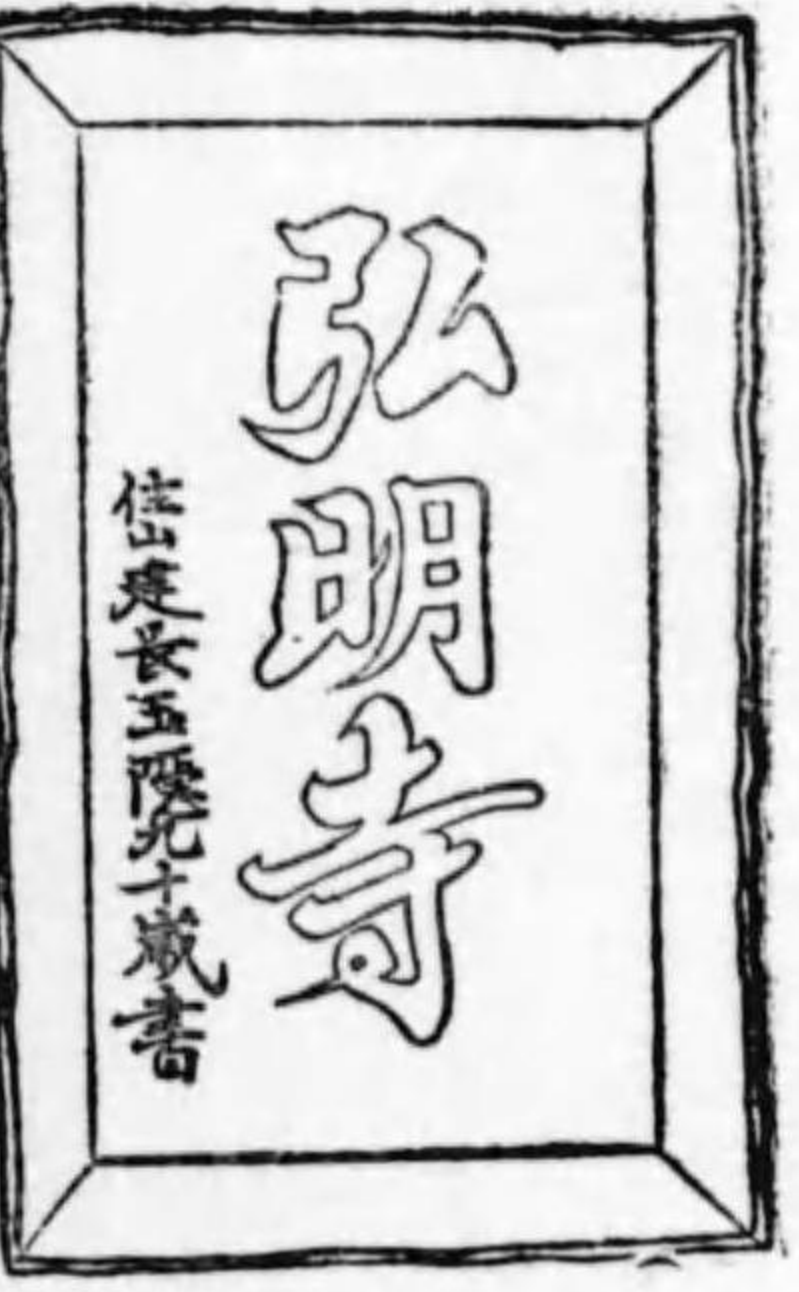 弘明寺
住山建長玉隠九十歳書